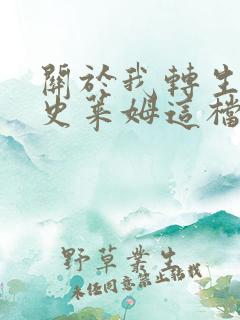 關於我轉生
史萊姆這檔
野草叢生
未经同意禁止转载